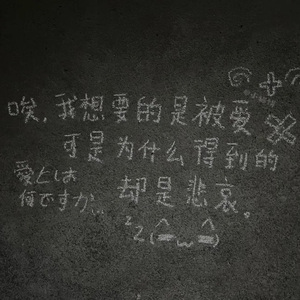 唉，我想要的是被爱
可是为什么得到的
却是悲哀。
愛としは
何ですか...